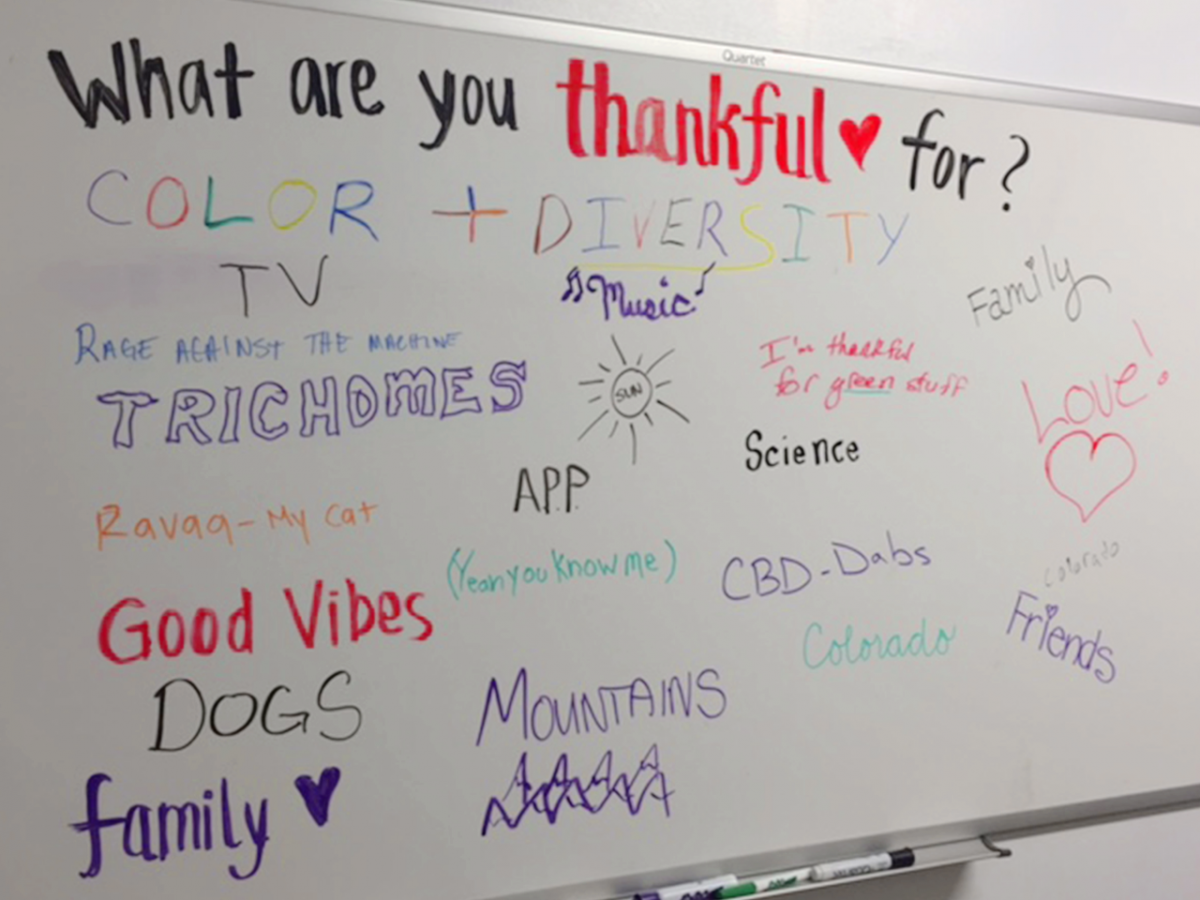 Quartet
What are you thankful for?
COLOR + DIVERSITY
TV
Music
Family
RAGE AGAINST THE MACHINE
TRICHOMES
SUN
I'm thankful
for green stuff
Love!
Science
A.P.P.
Ravaq - My cat
(Yeah you know me)
CBD-Dabs
Colorado
Good Vibes
Colorado
Friends
DOGS
MOUNTAINS
family